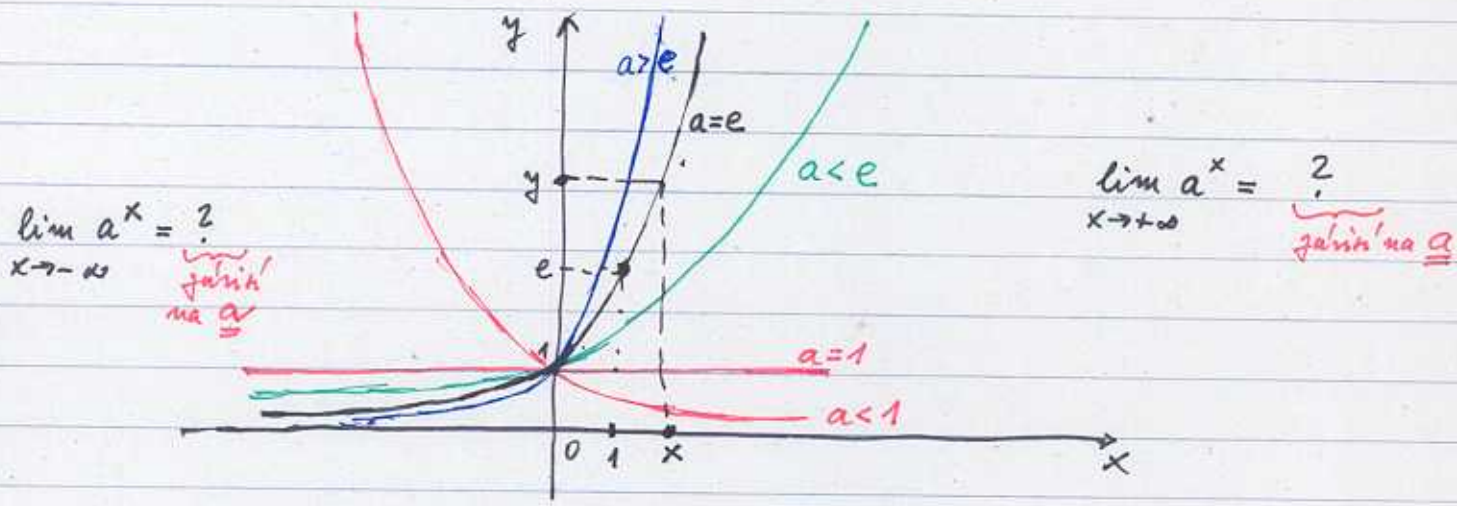 y
a>e
a=e
a<e
y
e
1
a=1
a<1
0 1 x
x
lim a^x = ?
x→-∞
závisí
na a
lim a^x = ?
x→+∞
závisí na a